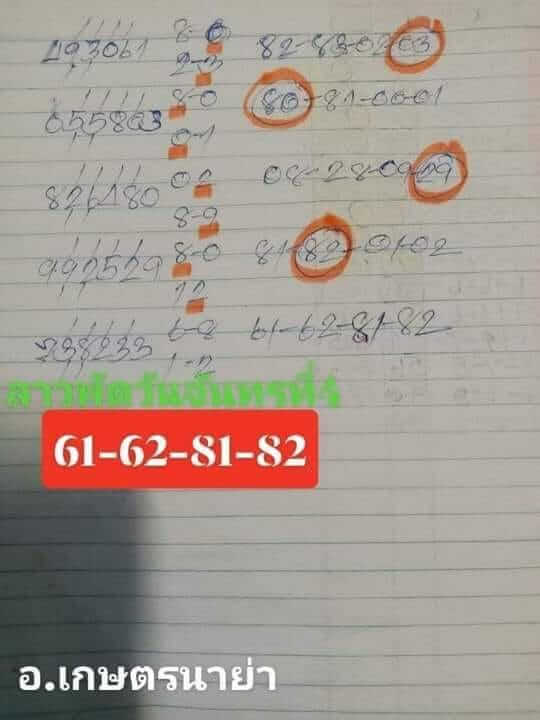 493061 8-6 82-83-62-63
2-3
655863 8-0 80-81-00-01
0-1
826480 02 08-28-09-29
8-9
992529 8-0 81-82-01-02
12
238233 6-8 61-62-81-82
1-2
ลาวพัดวันจันทรที่4
61-62-81-82
อ.เกษตรนาย่า